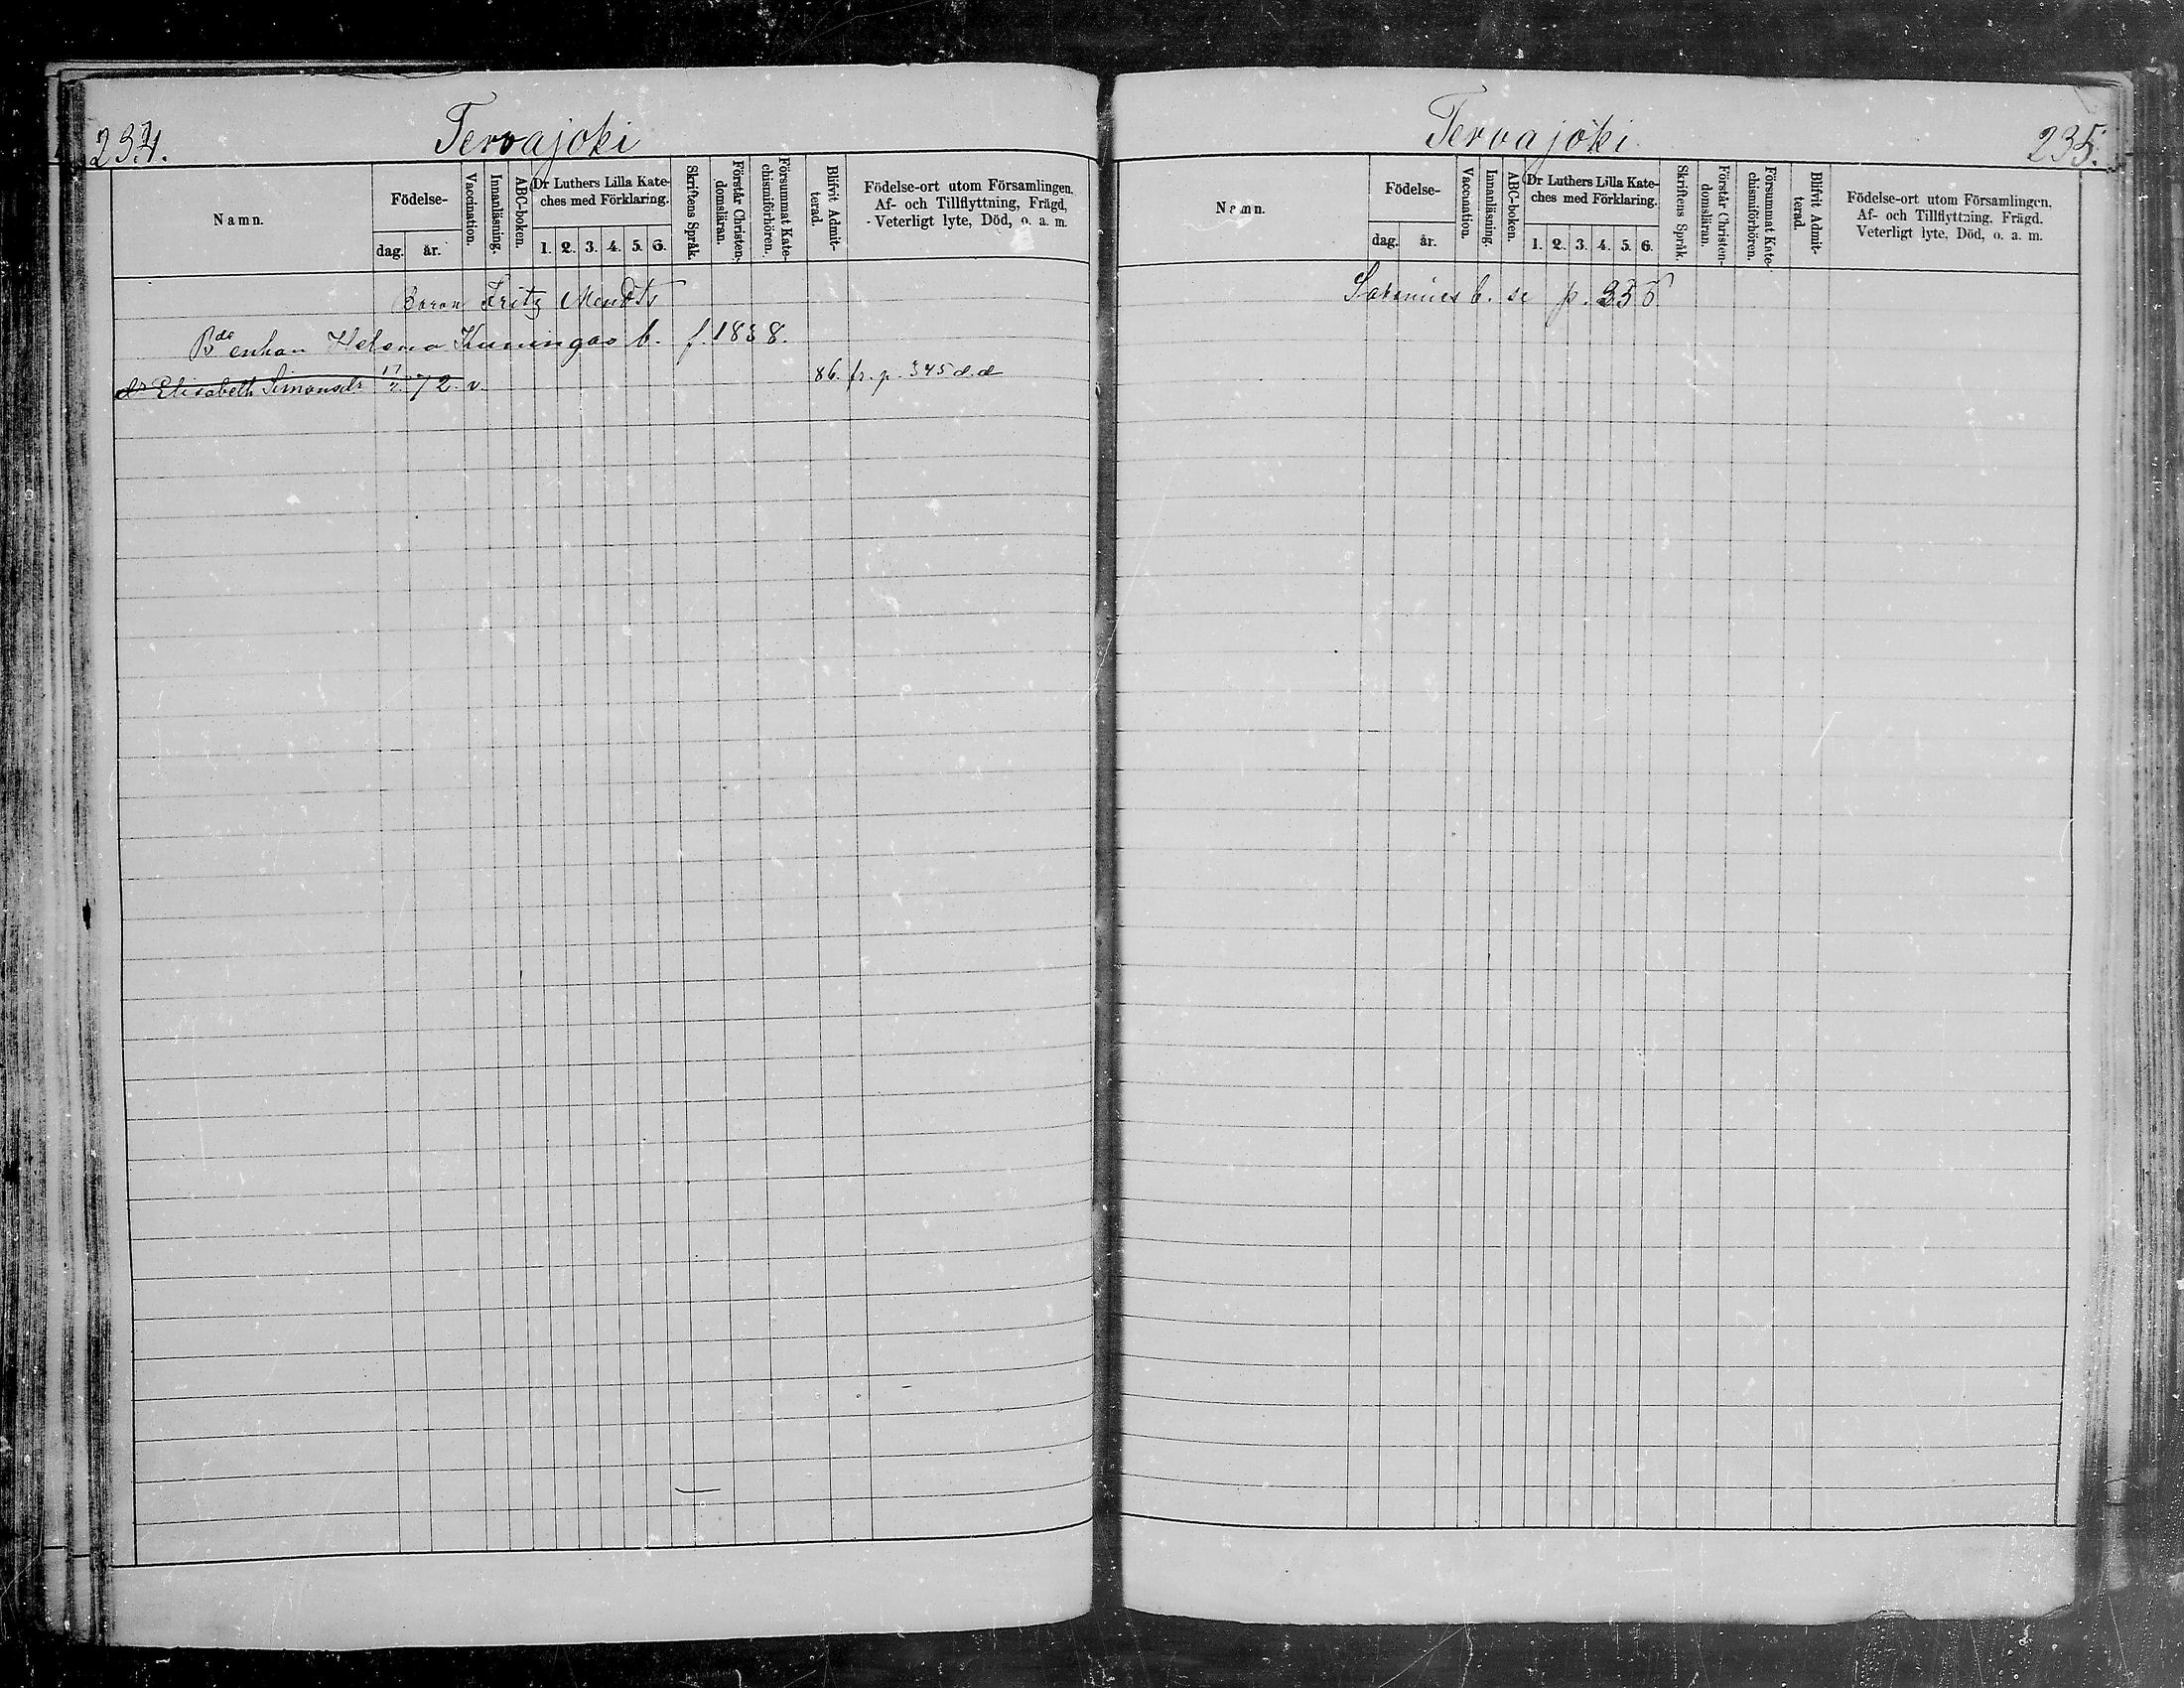 234.
Tervajoki
Namn.
Födelse-
dag.
år.
Vaccination.
Innanläsning.
ABC-boken.
Dr Luthers Lilla Kate-
ches med Förklaring.
1. 2. 3. 4. 5. 6.
Skriftens Språk.
Förstår Christen-
domsläran.
Försummat Kate-
chismiförhören.
Blifvit Admit-
terad.
Födelse-ort utom Församlingen,
Af- och Tillflyttning, Frägd,
Veterligt lyte, Död, o. a. m.
Baron Fritz Mendts
Bde enkan Helena Kuningas b. f. 1838.
dr Elisabeth Simonsdr 17/2. 72. v. 86. fr. p. 345 d.d
Tervajoki
235.
Namn.
Födelse-
dag.
år.
Vaccination.
Innanläsning.
ABC-boken.
Dr Luthers Lilla Kate-
ches med Förklaring.
1. 2. 3. 4. 5. 6.
Skriftens Språk.
Förstår Christen-
domsläran.
Försummat Kate-
chismiförhören.
Blifvit Admit-
terad.
Födelse-ort utom Församlingen,
Af- och Tillflyttning, Frägd.
Veterligt lyte, Död, o. a. m.
b. se p.